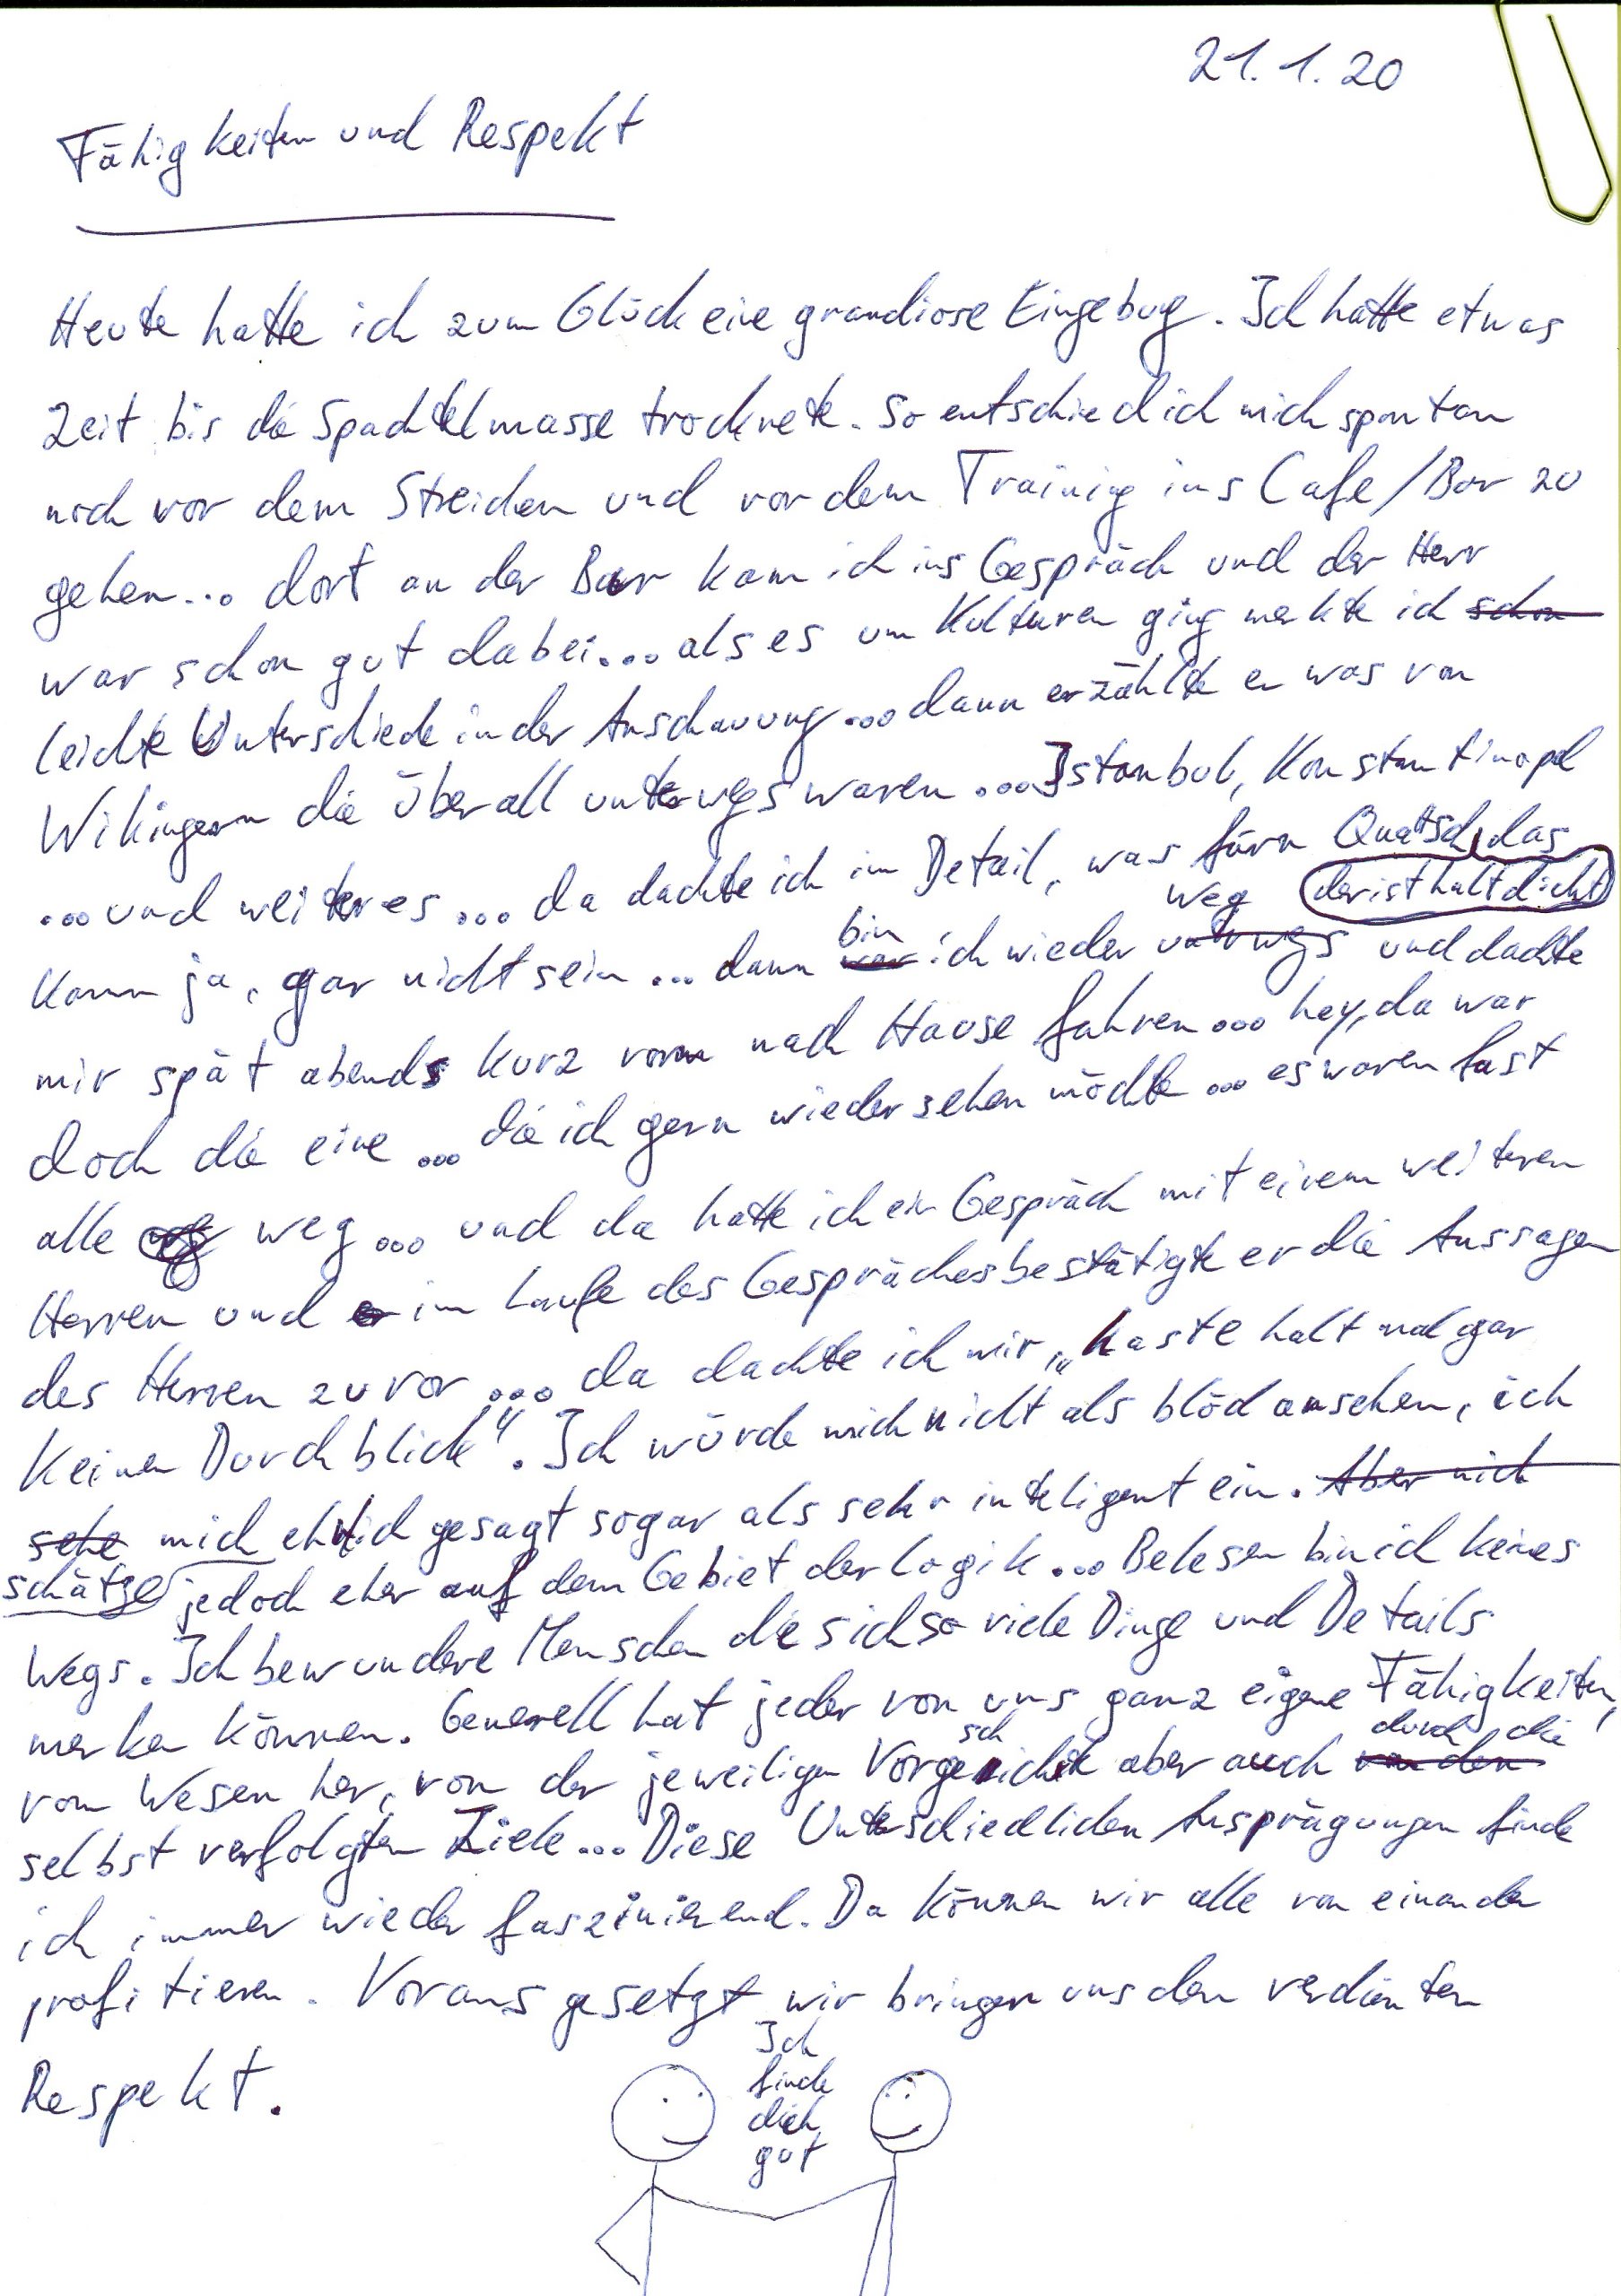 21.1.20
Fähigkeiten und Respekt
Heute hatte ich zum Glück eine grandiose Eingebug. Ich hatte etwas
Zeit bis die Spachtelmasse trocknete. So entschied ich mich spontan
noch vor dem Streichen und vor dem Training ins Cafe/Bar zu
gehen... dort an der Bar kam ich ins Gespräch und der Herr
war schon gut dabei... als es um Kulturen ging merkte ich schon
leichte Unterschiede in der Anschauung... dann erzählte er was von
Wikingern die überall unterwegs waren... Istanbul, Konstantinopel
...und weiteres... da dachte ich im Detail, was fürn Quatsch, das
der ist halt dicht
kann ja, gar nicht sein... dann war bin ich wieder unterwegs weg und dachte
mir spät abends kurz vorm nach Hause fahren... hey, da war
doch die eine... die ich gern wieder sehen möchte... es waren fast
alle weg... und da hatte ich ein Gespräch mit einem weiteren
Herren und er im Laufe des Gespräches bestätigte er die Aussagen
des Herren zuvor... da dachte ich mir, "haste halt mal gar
keinen Durchblick". Ich würde mich nicht als blöd ansehen, ich
sehe mich ehrlich gesagt sogar als sehr inteligent ein. Aber mich
schätze jedoch eher auf dem Gebiet der Logik... Belesen bin ich keines
Wegs. Ich bewundere Menschen die sich so viele Dinge und Details
merken können. Generell hat jeder von uns ganz eigene Fähigkeiten,
vom Wesen her, von der jeweiligen Vorgeschichte aber auch von den durch die
selbst verfolgten Ziele... Diese Unterschiedlichen Ausprägungen finde
ich immer wieder faszinierend. Da können wir alle von einander
profitieren. Voraus gesetzt wir bringen uns den verdienten
Respekt.
Ich
finde
dich
gut